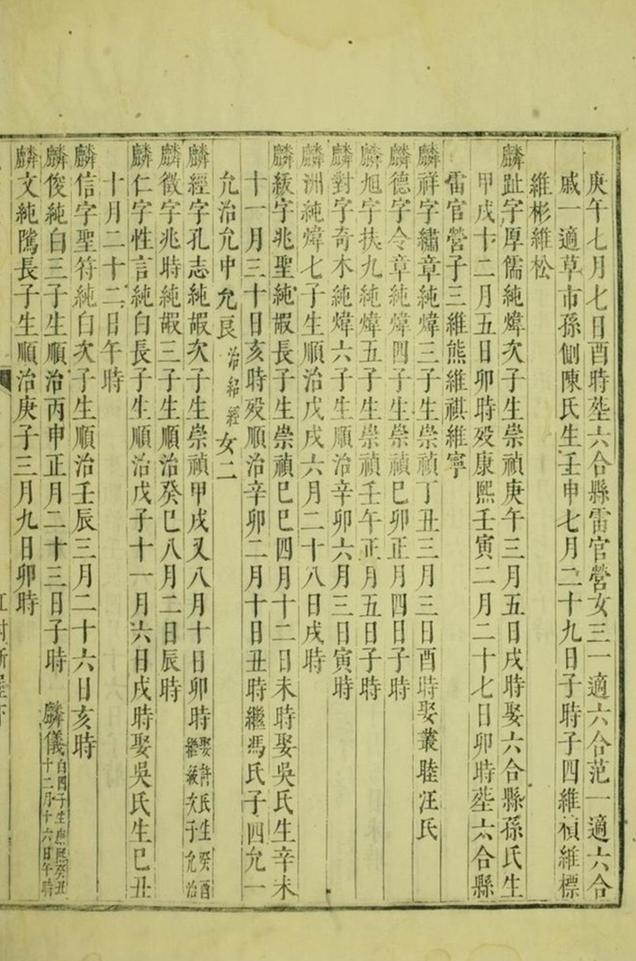 庚午七月七日酉時塟六合縣雷官營女三一適六合范一適六合
戚一適草市孫側陳氏生壬申七月二十九日子時子四維禎維標
維彬維松
麟趾字厚儒純煒次子生崇禎庚午三月五日戌時娶六合縣孫氏生
甲戌十二月五日卯時殁康熙壬寅二月二十七日卯時塟六合縣
雷官營子三維熊維祺維寧
麟祥字繡章純煒三子生崇禎丁丑三月三日酉時娶叢睦汪氏
麟德字令章純煒四子生崇禎己卯正月四日子時
麟旭字扶九純煒五子生崇禎壬午正月五日子時
麟對字奇木純煒六子生順治辛卯六月三日寅時
麟洲純煒七子生順治戊戌六月二十八日戌時
麟紱字兆聖純嘏長子生崇禎己巳四月十二日未時娶吳氏生辛未
十一月三十日亥時殁順治辛卯二月十日丑時繼馮氏子四允一
允治允中允艮治紹經女二
麟經字孔志純嘏次子生崇禎甲戌又八月十日卯時娶許氏生癸酉繼紱次子允治
麟徵字兆時純嘏三子生順治癸巳八月二日辰時
麟仁字性言純白長子生順治戊子十一月六日戌時娶吳氏生己丑
十月二十二日午時
麟信字聖符純白次子生順治壬辰三月二十六日亥時
麟俊純白三子生順治丙申正月二十三日子時 麟儀白四子生康熙癸丑十二月十六日午時
麟文純隲長子生順治庚子三月九日卯時